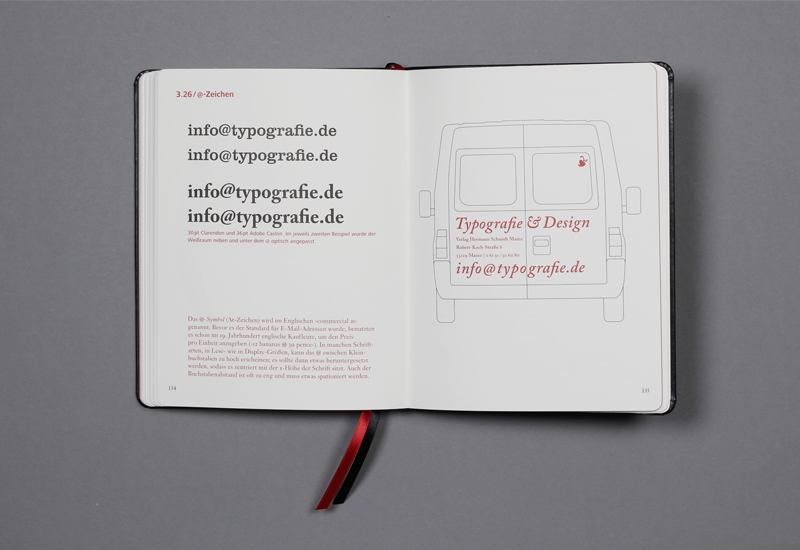 3.26 / @-Zeichen
info@typografie.de
info@typografie.de
info@typografie.de
info@typografie.de
36pt Clarendon und 36pt Adobe Caslon. Im jeweils zweiten Beispiel wurde der
Weißraum neben und unter dem @ optisch angepasst.
Das @-Symbol (At-Zeichen) wird im Englischen ›commercial at‹
genannt. Bevor es der Standard für E-Mail-Adressen wurde, benutzten
es schon im 19. Jahrhundert englische Kaufleute, um den Preis
pro Einheit anzugeben (›12 bananas @ 30 pence‹). In manchen Schrift-
arten, in Lese- wie in Display-Größen, kann das @ zwischen Klein-
buchstaben zu hoch erscheinen; es sollte dann etwas heruntergesetzt
werden, sodass es zentriert mit der x-Höhe der Schrift sitzt. Auch der
Buchstabenabstand ist oft zu eng und muss etwas spationiert werden.
134
Typografie & Design
Verlag Hermann Schmidt Mainz
Robert-Koch-Straße 8
55129 Mainz | 0 61 31 / 50 60 80
info@typografie.de
135